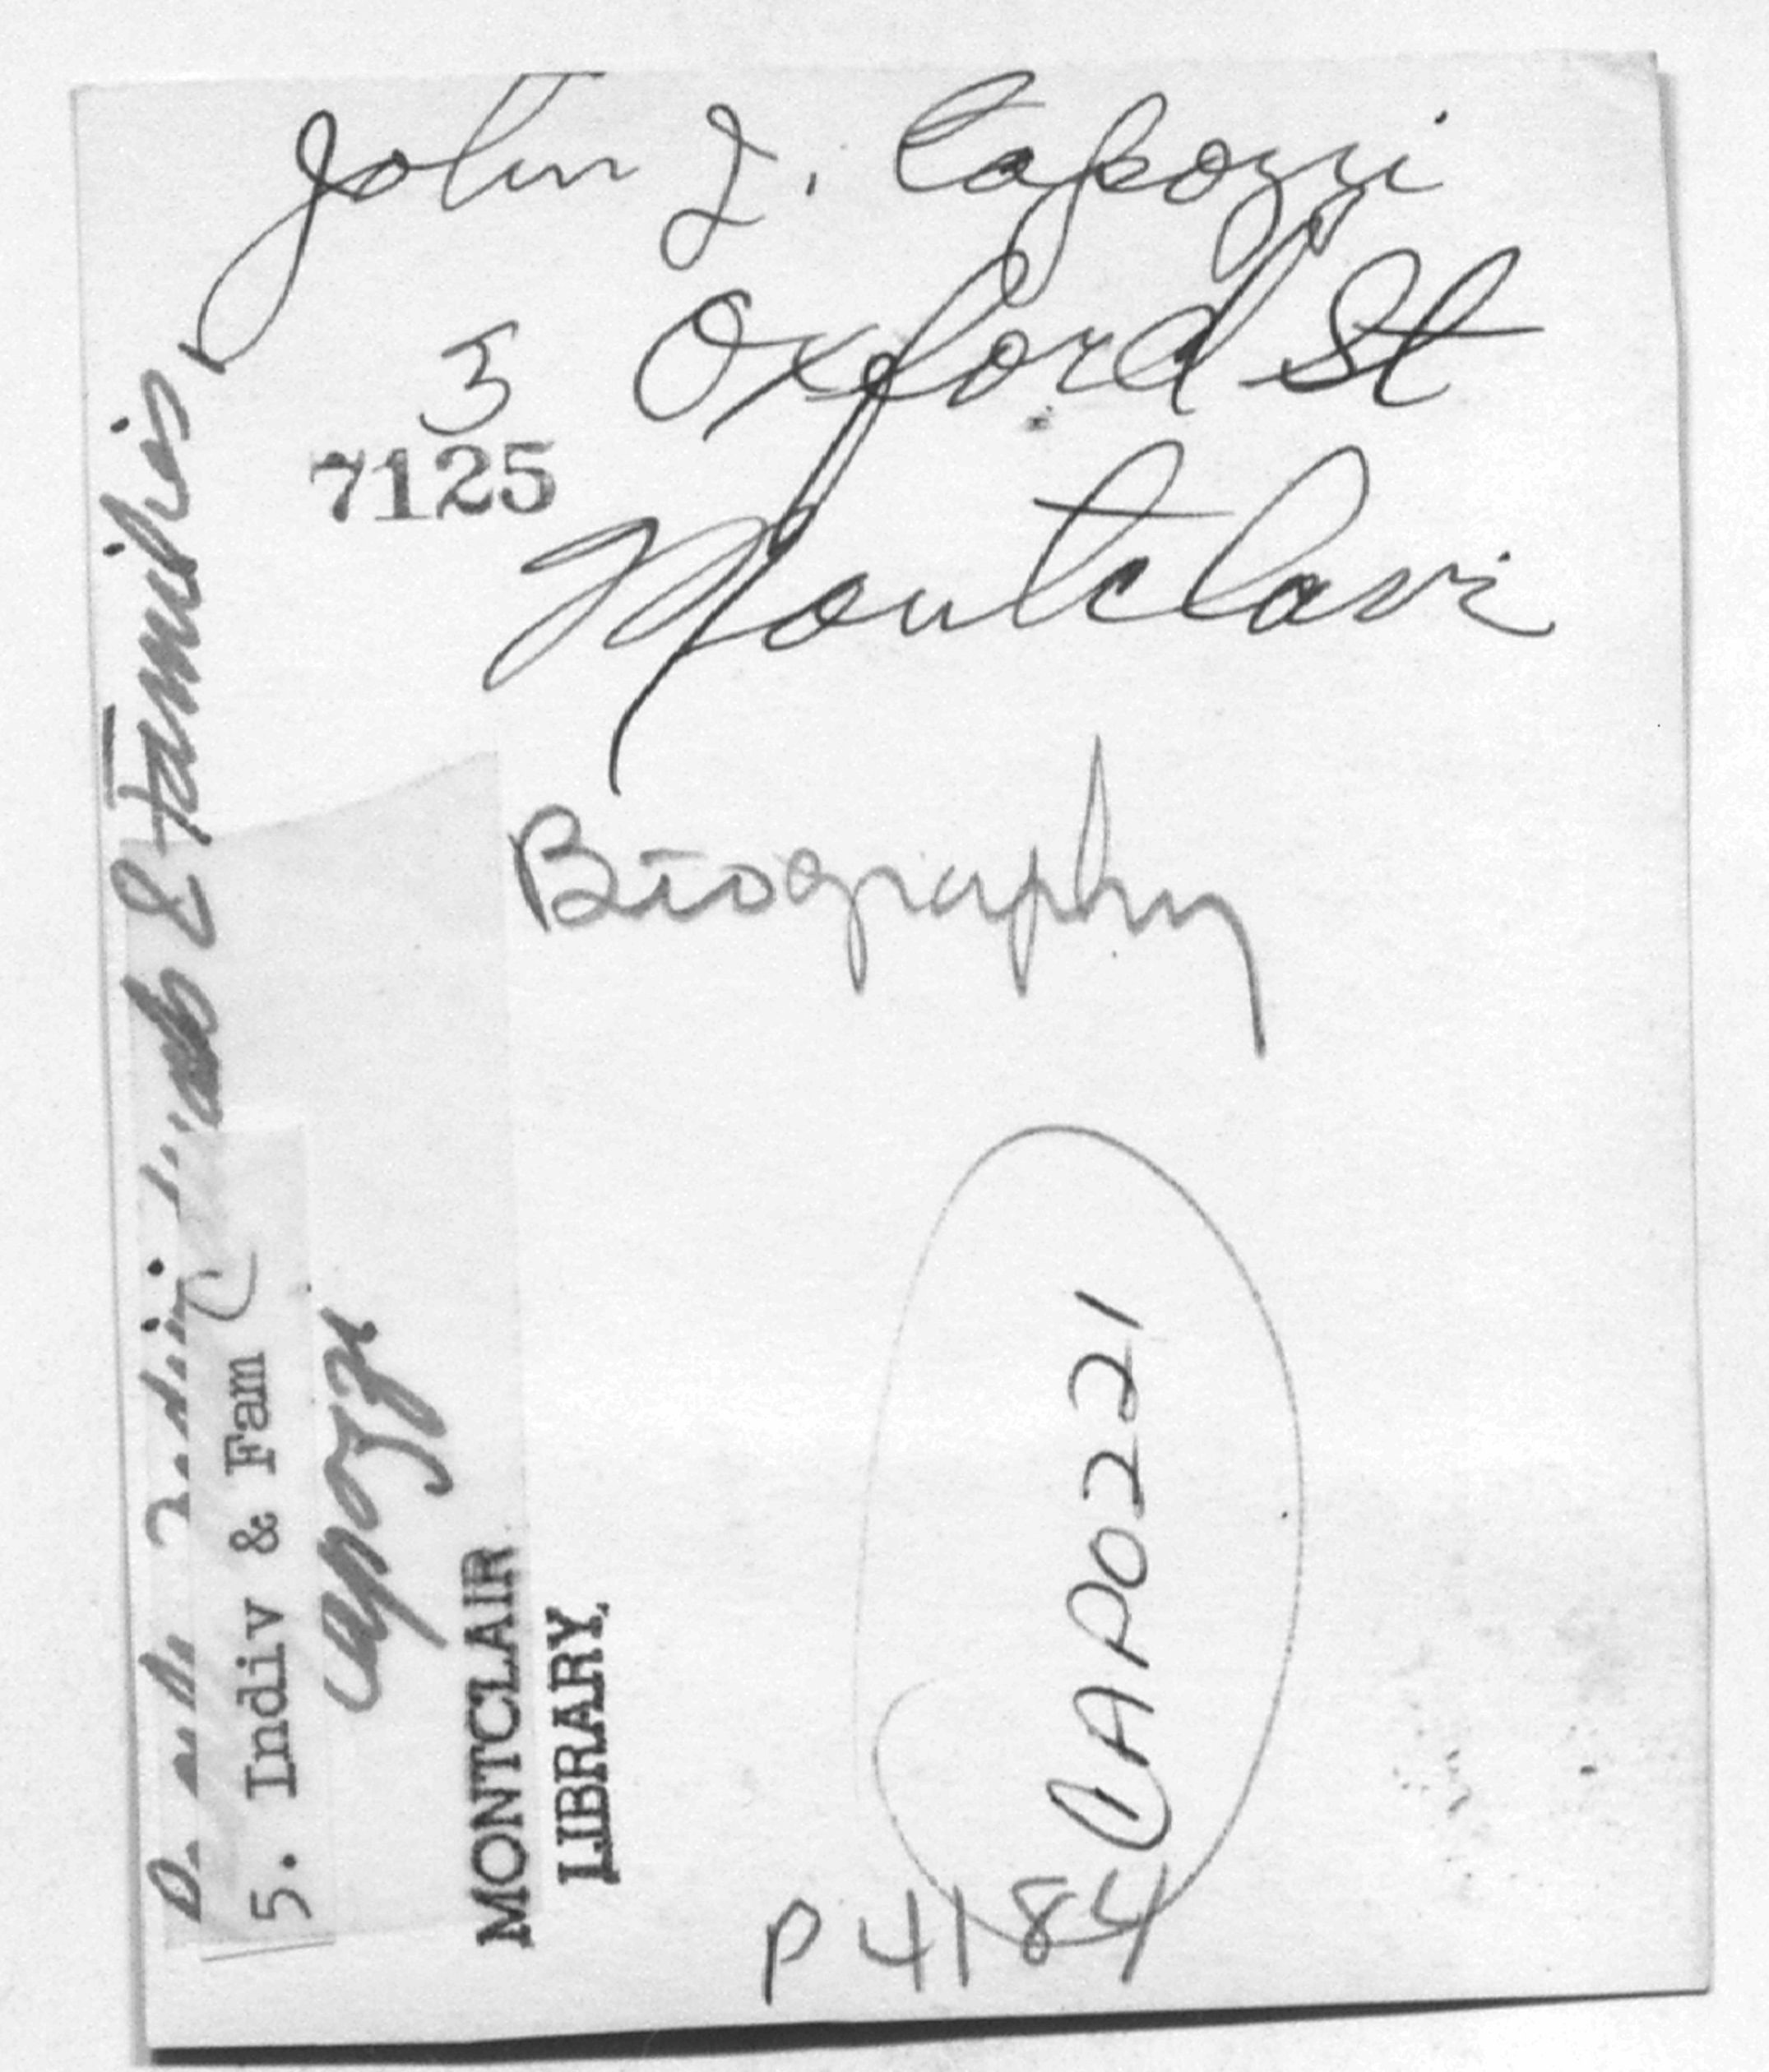 John J. Capozzi
3 Oxford St
7125
Montclair
Biography
& Families
5. Indiv & Fam
Capozzi
MONTCLAIR
LIBRARY.
CAP0221
P4184